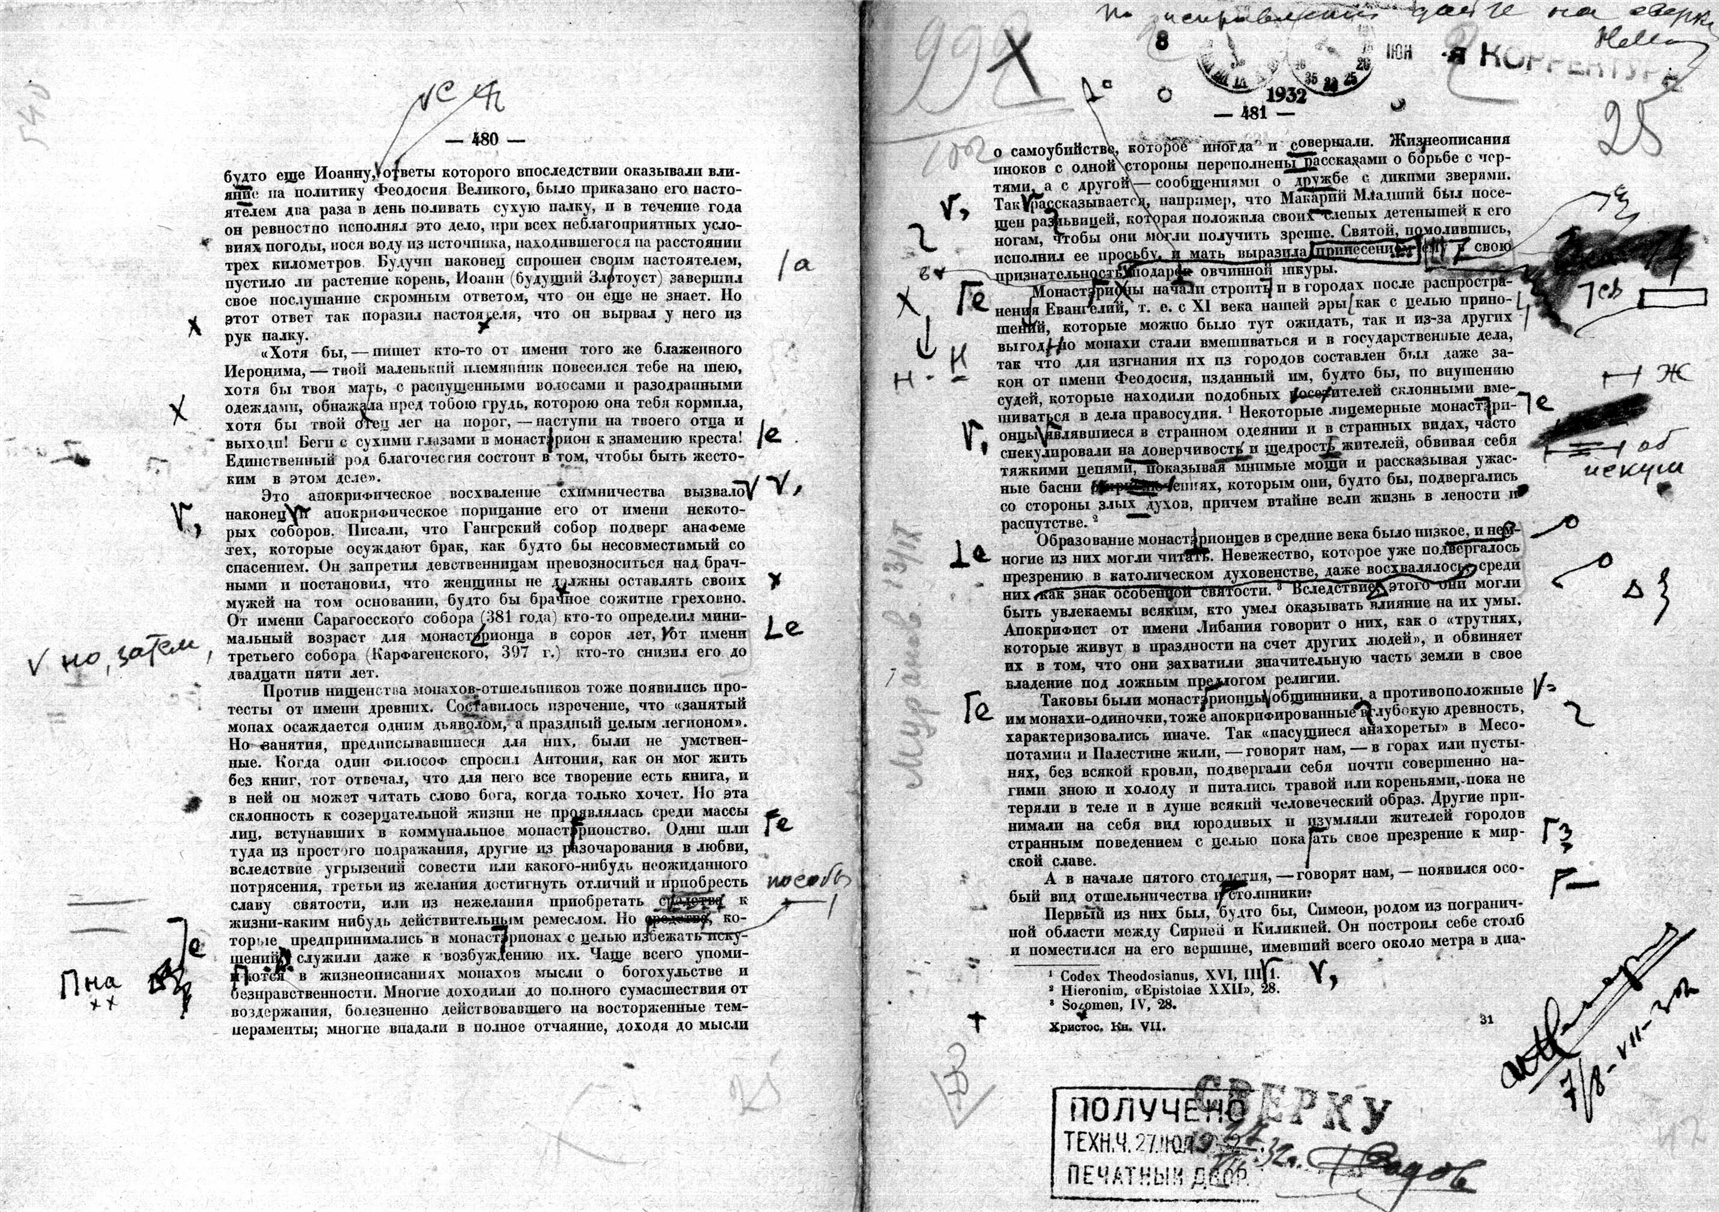 — 480 —
будто еще Иоанну, ответы которого впоследствии оказывали вли-
яние на политику Феодосия Великого, было приказано его насто-
ятелем два раза в день поливать сухую палку, и в течение года
он ревностно исполнял это дело, при всех неблагоприятных усло-
виях погоды, нося воду из источника, находившегося на расстоянии
трех километров. Будучи наконец спрошен своим настоятелем,
пустило ли растение корень, Иоанн (будущий Златоуст) завершил
свое послушание скромным ответом, что он еще не знает. Но
этот ответ так поразил настоятеля, что он вырвал у него из
рук палку.
«Хотя бы, — пишет кто-то от имени того же блаженного
Иеронима, — твой маленький племянник повесился тебе на шею,
хотя бы твоя мать, с распущенными волосами и разодранными
одеждами, обнажала пред тобою грудь, которою она тебя кормила,
хотя бы твой отец лег на порог, — наступи на твоего отца и
выходи! Беги с сухими глазами в монастэрион к знамению креста!
Единственный род благочестия состоит в том, чтобы быть жесто-
ким в этом деле».
Это апокрифическое восхваление схимничества вызвало
наконец и апокрифическое порицание его от имени некото-
рых соборов. Писали, что Гангрский собор подверг анафеме
тех, которые осуждают брак, как будто бы несовместимый со
спасением. Он запретил девственницам превозноситься над брач-
ными и постановил, что женщины не должны оставлять своих
мужей на том основании, будто бы брачное сожитие греховно.
От имени Сарагосского собора (381 года) кто-то определил мини-
мальный возраст для монастэрионца в сорок лет, от имени
третьего собора (Карфагенского, 397 г.) кто-то снизил его до
двадцати пяти лет.
Против нищенства монахов-отшельников тоже появились про-
тесты от имени древних. Составилось изречение, что «занятый
монах осаждается одним дьяволом, а праздный целым легионом».
Но занятия, предписывавшиеся для них, были не умствен-
ные. Когда один философ спросил Антония, как он мог жить
без книг, тот отвечал, что для него все творение есть книга, и
в ней он может читать слово бога, когда только хочет. Но эта
склонность к созерцательной жизни не проявлялась среди массы
лиц, вступавших в коммунальное монастэрионство. Одни шли
туда из простого подражания, другие из разочарования в любви,
вследствие угрызений совести или какого-нибудь неожиданного
потрясения, третьи из желания достигнуть отличий и приобресть
славу святости, или из нежелания приобретать средства к
жизни-каким нибудь действительным ремеслом. Но средства, ко-
торые предпринимались в монастэрионах с целью избежать иску-
шений, служили даже к возбуждению их. Чаще всего упоми-
наются в жизнеописаниях монахов мысли о богохульстве и
безнравственности. Многие доходили до полного сумасшествия от
воздержания, болезненно действовавшего на восторженные тем-
пераменты; многие впадали в полное отчаяние, доходя до мысли
но, затем,
пособы
П на
По исправлении дайте на сверку
8 ИЮН 1932
-я КОРРЕКТУРА
25
— 481 —
о самоубийстве, которое иногда и совершали. Жизнеописания
иноков с одной стороны переполнены рассказами о борьбе с чер-
тями, а с другой — сообщениями о дружбе с дикими зверями.
Так рассказывается, например, что Макарий Младший был посе-
щен раз львицей, которая положила своих слепых детенышей к его
ногам, чтобы они могли получить зрение. Святой, помолившись,
исполнил ее просьбу, и мать выразила принесением ему в свою
признательность подарок овчинной шкуры.
Монастэрионы начали строить и в городах после распростра-
нения Евангелий, т. е. с XI века нашей эры, как с целью прино-
шений, которые можно было тут ожидать, так и из-за других
выгод, но монахи стали вмешиваться и в государственные дела,
так что для изгнания их из городов составлен был даже за-
кон от имени Феодосия, изданный им, будто бы, по внушению
судей, которые находили подобных посетителей склонными вме-
шиваться в дела правосудия. ¹ Некоторые лицемерные монастэри-
онцы являвшиеся в странном одеянии и в странных видах, часто
спекулировали на доверчивость и щедрость жителей, обвивая себя
тяжкими цепями, показывая мнимые мощи и рассказывая ужас-
ные басни о ениях, которым они, будто бы, подвергались
со стороны злых духов, причем втайне вели жизнь в лености и
распутстве. ²
Образование монастэрионцев в средние века было низкое, и нем-
ногие из них могли читать. Невежество, которое уже подвергалось
презрению в католическом духовенстве, даже восхвалялось среди
них как знак особенной святости. ³ Вследствие этого они могли
быть увлекаемы всяким, кто умел оказывать влияние на их умы.
Апокрифист от имени Либания говорит о них, как о «трутнях,
которые живут в праздности на счет других людей», и обвиняет
их в том, что они захватили значительную часть земли в свое
владение под ложным предлогом религии.
Таковы были монастэрионцы общинники, а противоположные
им монахи-одиночки, тоже апокрифированные в глубокую древность,
характеризовались иначе. Так «пасущиеся анахореты» в Месо-
потамии и Палестине жили, — говорят нам, — в горах или пусты-
нях, без всякой кровли, подвергали себя почти совершенно на-
гими зною и холоду и питались травой или кореньями, пока не
теряли в теле и в душе всякий человеческий образ. Другие при-
нимали на себя вид юродивых и изумляли жителей городов
странным поведением с целью показать свое презрение к мир-
ской славе.
А в начале пятого столетия, — говорят нам, — появился осо-
бый вид отшельничества и столпники:
Первый из них был, будто бы, Симеон, родом из погранич-
ной области между Сирией и Киликией. Он построил себе столб
и поместился на его вершине, имевший всего около метра в диа-
¹ Codex Theodosianus, XVI, III, 1.
² Hieronim, «Epistolae XXII», 28.
³ Sozomen, IV, 28.
Христос. Кн. VII.
31
об
искуш
Муранов. 13/IX
7/8-VII-32
СВЕРКУ
ПОЛУЧЕНО
ТЕХН.Ч. 27 ИЮЛ
ПЕЧАТНЫЙ ДВОР